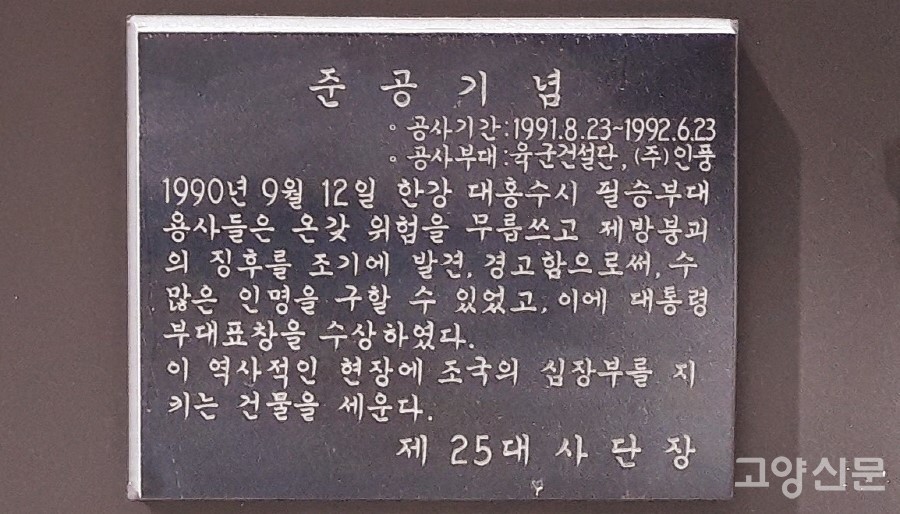 준 공 기 념
◦ 공사기간:1991.8.23~1992.6.23
◦ 공사부대:육군건설단, (주)인풍
1990년 9월 12일 한강 대홍수시 필승부대
용사들은 온갖 위험을 무릅쓰고 제방붕괴
의 징후를 조기에 발견, 경고함으로써, 수
많은 인명을 구할 수 있었고, 이에 대통령
부대표창을 수상하였다.
이 역사적인 현장에 조국의 심장부를 지
키는 건물을 세운다.
제 25대 사 단 장
고양신문